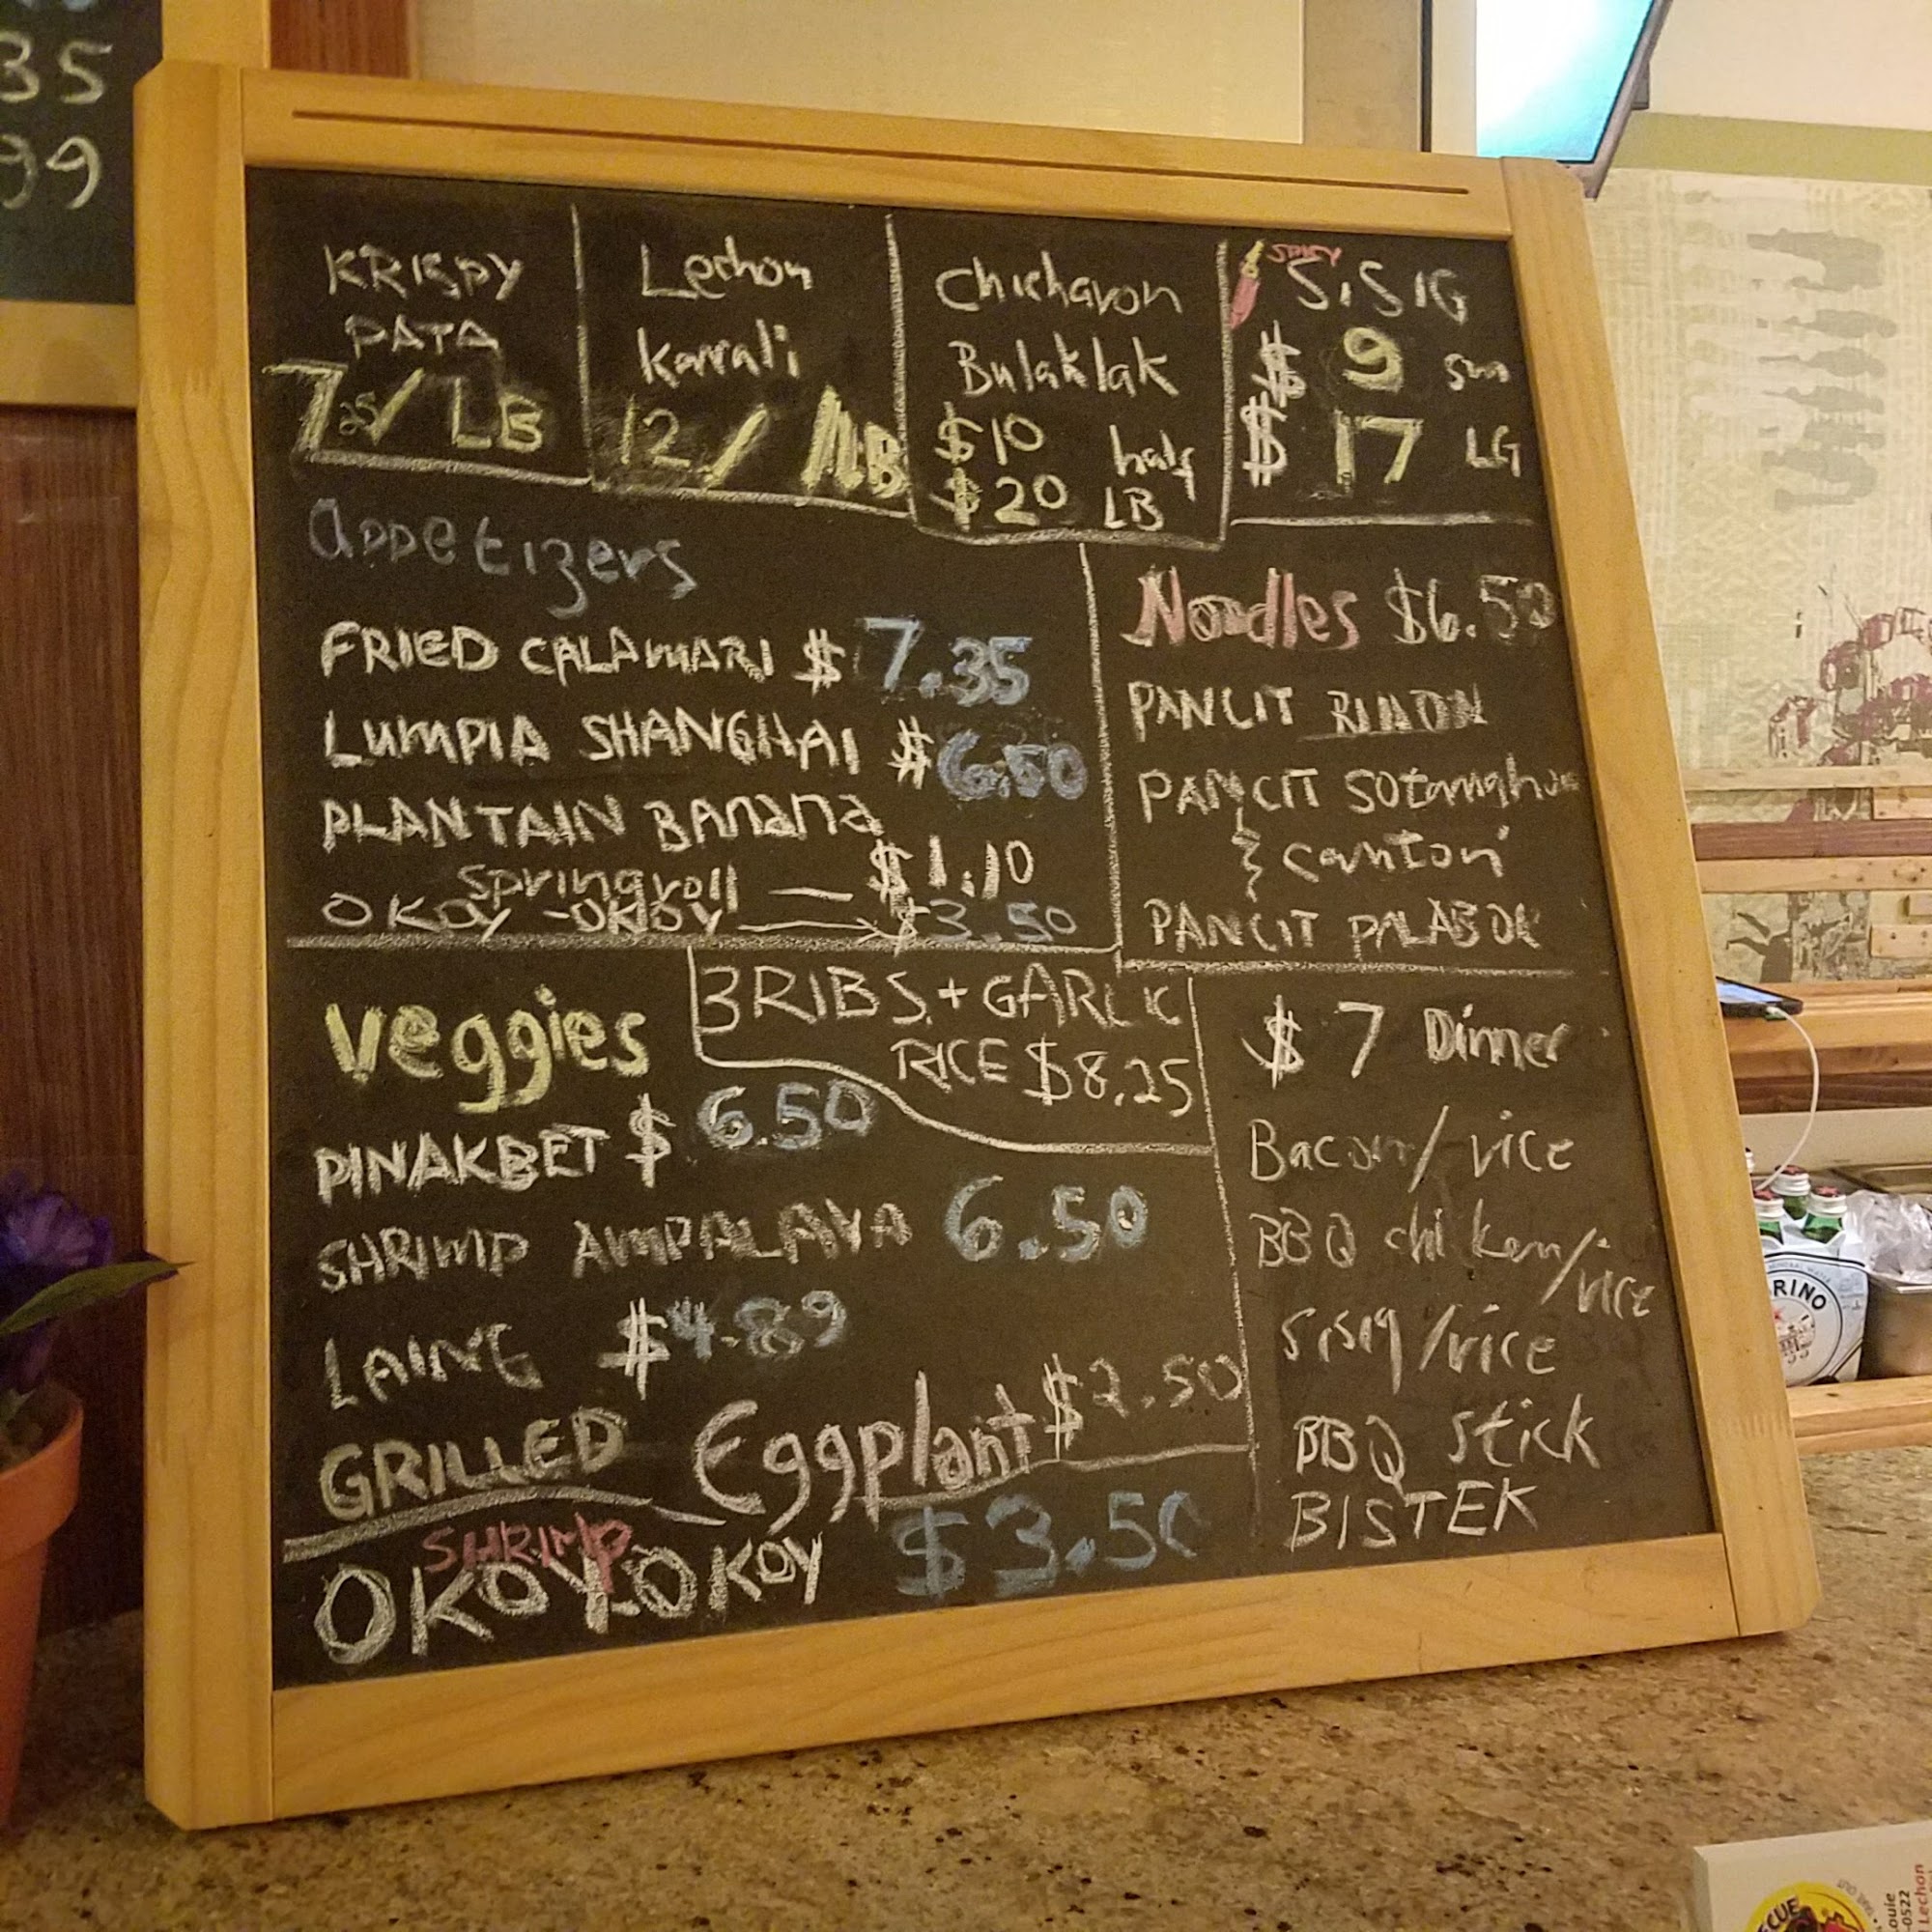 35
99
KRISPY
PATA
7 25/ LB
Lechon
Kawali
12 / LB
Chicharon
Bulaklak
$10 half
$20 LB
SPICY
SiSIG
$ 9 sm
$ 17 LG
appetizers
FRIED CALAMARI $7.35
LUMPIA SHANGHAI $6.50
PLANTAIN BAnana
Springroll — $1.10
OKOY-OKOY $3.50
Noodles $6.50
PANCIT BIHON
PANCIT Sotanghon
& canton
PANCIT PALABOK
veggies
PINAKBET $6.50
SHRIMP AMPALAYA 6.50
LAING $4.89
GRILLED Eggplant $2.50
3 RIBS + GARLIC
RICE $8.25
$7 Dinner
Bacon/rice
BBQ chicken/rice
Sisig/rice
BBQ stick
BISTEK
SHRIMP
OKOY-OKOY $3.50
RINO